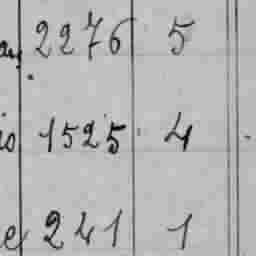 2276 5
1525 4
241 1